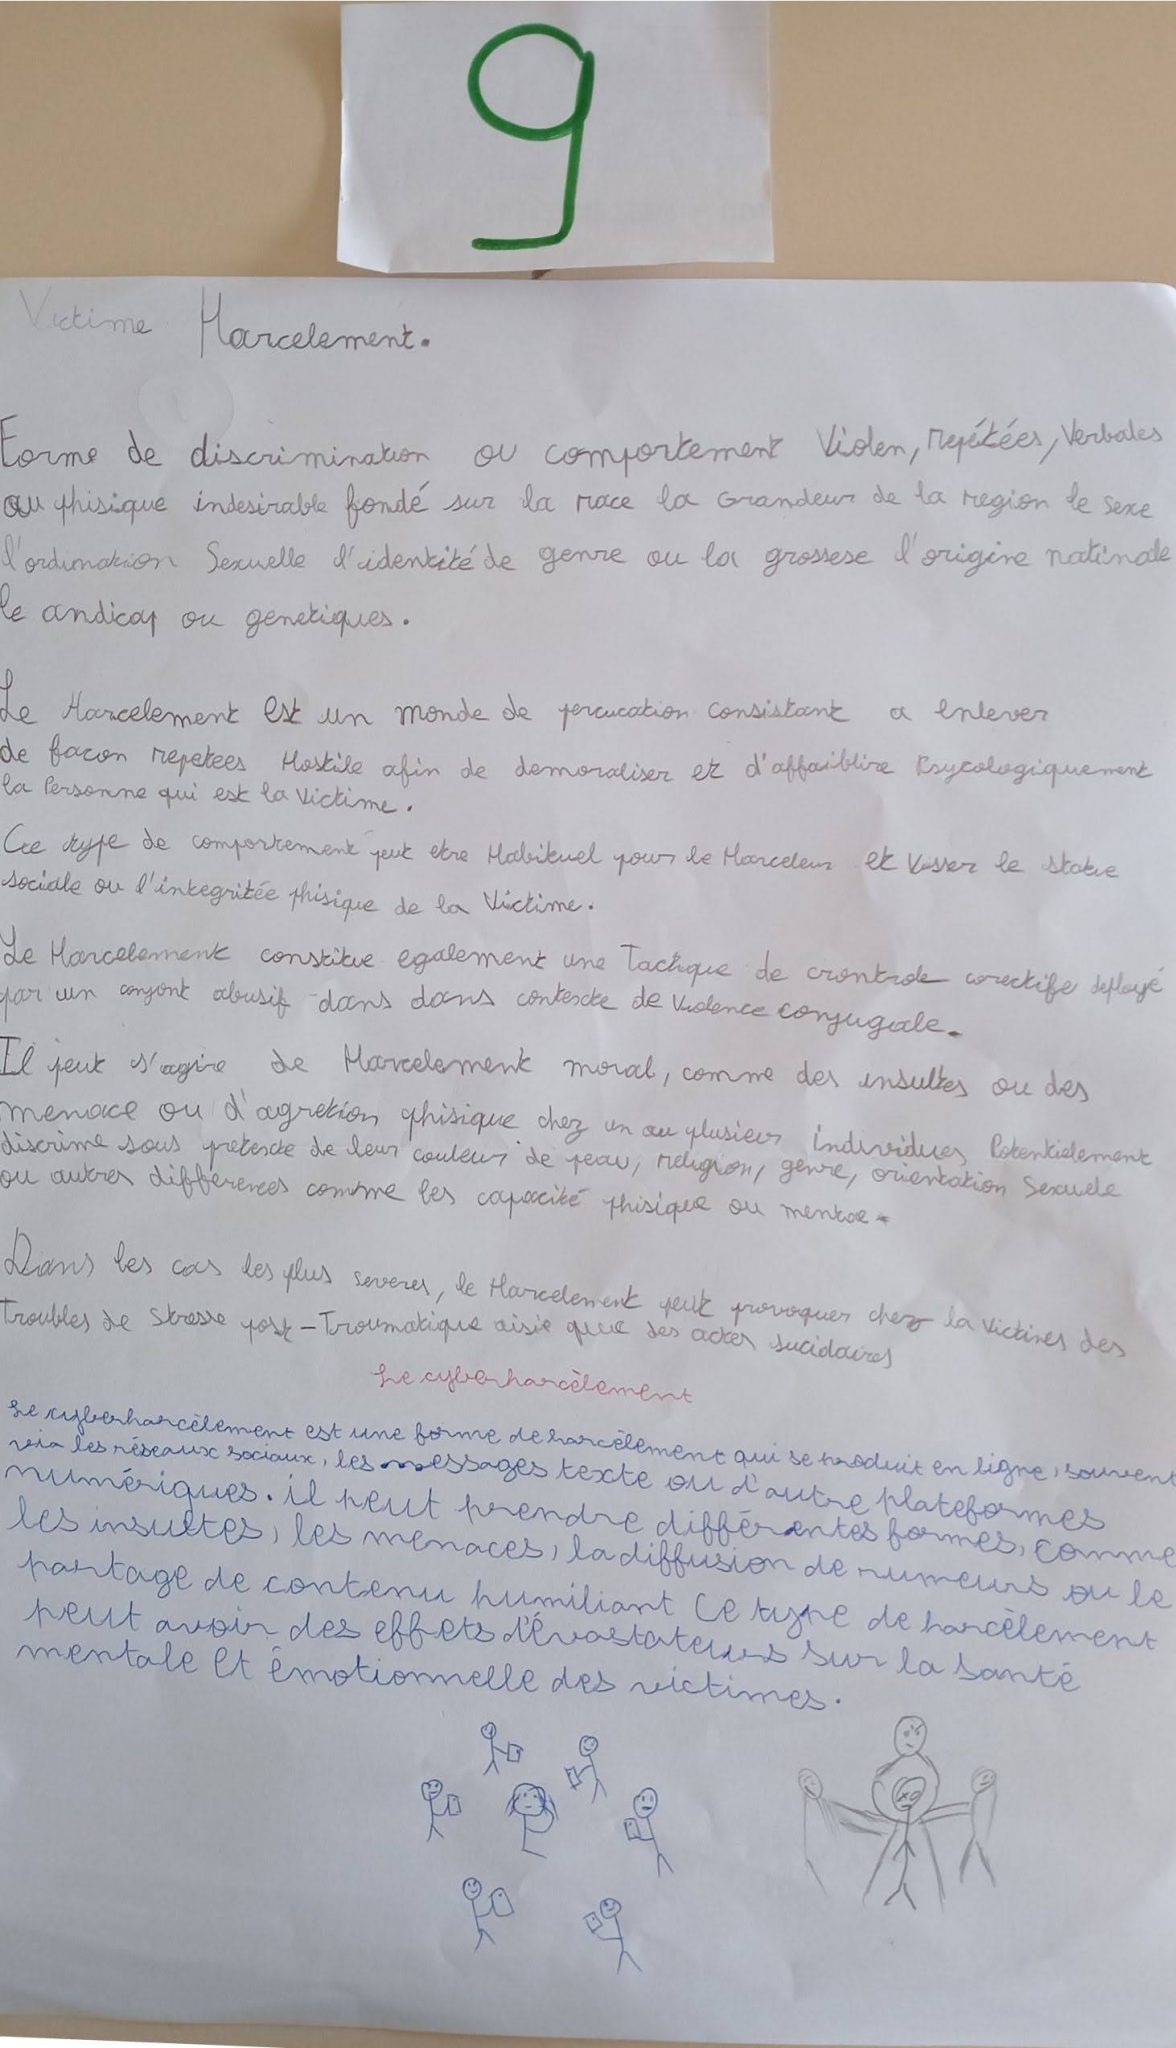 9
Victime Harcelement.
Forme de discrimination ou comportement Violen, repétées, Verbales
ou phisique indesirable fondé sur la race la Grandeur de la region le sexe
l'ordination Sexuelle l'identité de genre ou la grossese l'origine natinale
le andicap ou genetiques.
Le Harcelement est un monde de percucation consistant a enlever
de facon repetees Hostile afin de demoraliser et d'affaiblire Psycologiquement
la Personne qui est la Victime.
Cce type de comportement peut etre Habituel pour le Harceleur et Visser le statue
sociale ou l'integritée phisique de la Victime.
Le Harcelement constitue egalement une Tactique de crontrole corectife deployé
par un conjont abusif dans dans contexte de Violence conjugale.
Il peut s'agire de Harcelement moral, comme des insultes ou des
menace ou d'agretion phisique chez un ou plusieur individues Potentielement
discrime sous pretexte de leur couleur de peau, religion, genre, orientation Sexuele
ou autres differences comme les capacité phisique ou mentae.
Dans les cas les plus severes, le Harcelement peut provoquer chez la victimes des
Troubles de Stresse post-Troumatique aisie que des actes sucidaires
Le cyberharcèlement
Le cyberharcèlement est une forme de harcèlement qui se produit en ligne, souvent
via les réseaux sociaux, les messages texte ou d'autre plateformes
numériques. il peut prendre différentes formes, comme
les insultes, les menaces, la diffusion de rumeurs ou le
partage de contenu humiliant Ce type de harcèlement
peut avoir des effets d'évastateurs sur la santé
mentale et émotionnelle des victimes.